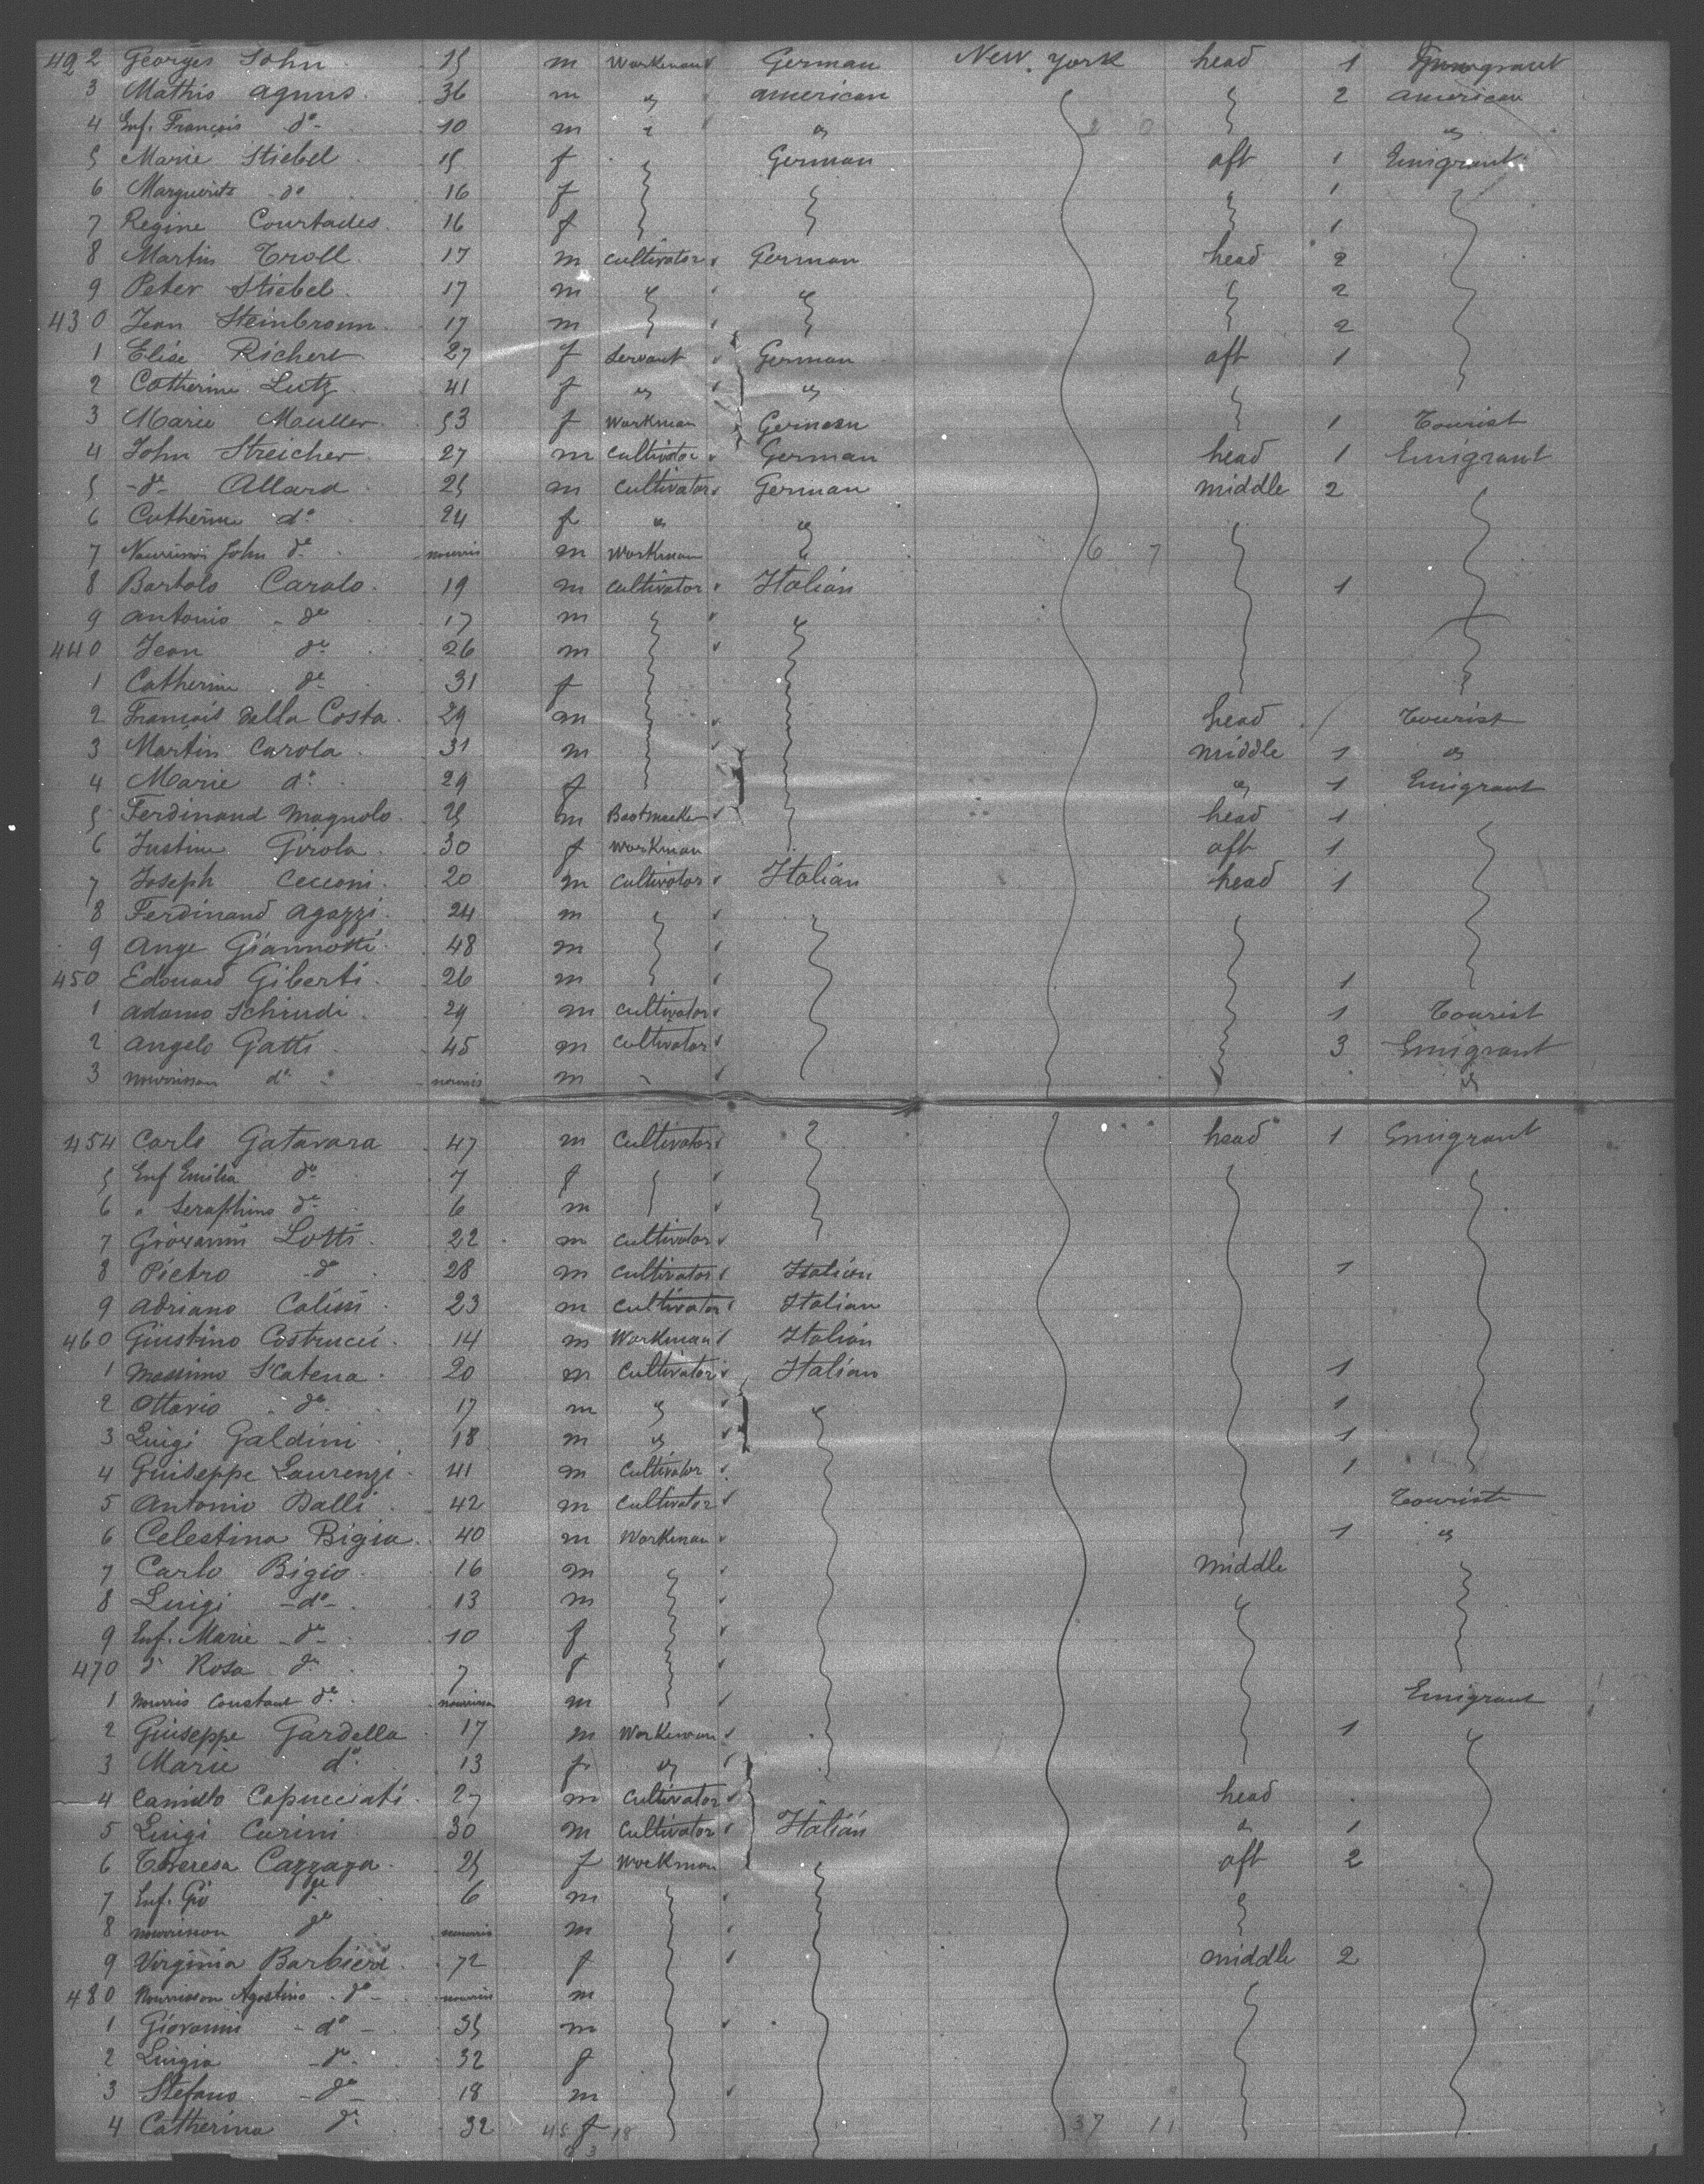 422 Georges John 15 m Workman German New York head 1 Emigrant
3 Mathis agnus 36 m " american 2 american
4 Enf. François do 10 m " " "
5 Marie Stiebel 15 f German aft 1 Emigrant
6 Marguerite do 16 f 1
7 Regine Courtades 16 f 1
8 Martin Troll 17 m cultivator German head 2
9 Peter Stiebel 17 m 2
430 Jean Steinbronn 17 m 2
1 Elise Richert 27 f Servant German aft 1
2 Catherine Lutz 41 f " "
3 Marie Muller 53 f Workman German 1 Tourist
4 John Streicher 27 m cultivator German head 1 Emigrant
5 -do- Allard 25 m cultivator German middle 2
6 Catherine do 24 f " "
7 Nourrisson John do nourris m Workman 6 7
8 Bartolo Carolo 19 m cultivator Italian 1
9 antonio do 17 m
440 Jean do 26 m
1 Catherine do 31 f
2 François Della Costa 29 m head / Tourist
3 Martin Carola 31 m middle 1 "
4 Marie do 29 f " 1 Emigrant
5 Ferdinand Magnolo 25 m Bootmaker head 1
6 Justine Girola 30 f Workman aft 1
7 Joseph Cecconi 20 m cultivator Italian head 1
8 Ferdinand agazzi 24 m
9 ange Giannotti 48 m
450 Edouard Giberti 26 m 1
1 adamo Schiudi 29 m cultivator 1 Tourist
2 angelo Gatti 45 m cultivator 3 Emigrant
3 nourrisson do nourris m "
454 Carlo Gatavara 47 m Cultivator head 1 Emigrant
5 Enf Emilia do 7 f
6 " Seraphino do 6 m
7 Giovanni Lotti 22 m cultivator
8 Pietro do 28 m cultivator Italian 1
9 adriano Calissi 23 m cultivator Italian
460 Giustino Costrucci 14 m Workman Italian
1 Massimo Scatena 20 m cultivator Italian 1
2 Ottavio do 17 m " 1
3 Luigi Galdini 18 m " 1
4 Giuseppe Laurenzi 41 m cultivator 1
5 Antonio Dalli 42 m cultivator Tourist
6 Celestina Bigia 40 m Workman 1 "
7 Carlo Bigio 16 m middle
8 Luigi -do- 13 m
9 Enf. Marie -do- 10 f
470 do Rosa do 7 f
1 Nourris Constant do nourrisson m Emigrant
2 Giuseppe Gardella 17 m Workman 1
3 Marie do 13 f "
4 Camillo Capucciati 27 m Cultivator head
5 Luigi Curini 30 m Cultivator Italian " 1
6 Theresa Cazzaga 25 f Workman aft 2
7 Enf. Gio do 6 m
8 nourrisson do nourris m
9 Virginia Barbieri 72 f middle 2
480 Nourrisson Agostino do nourris m
1 Giovanni -do- 35 m
2 Luigia -do- 32 f
3 Stefano -do- 18 m
4 Catherina do 32 f 37 11